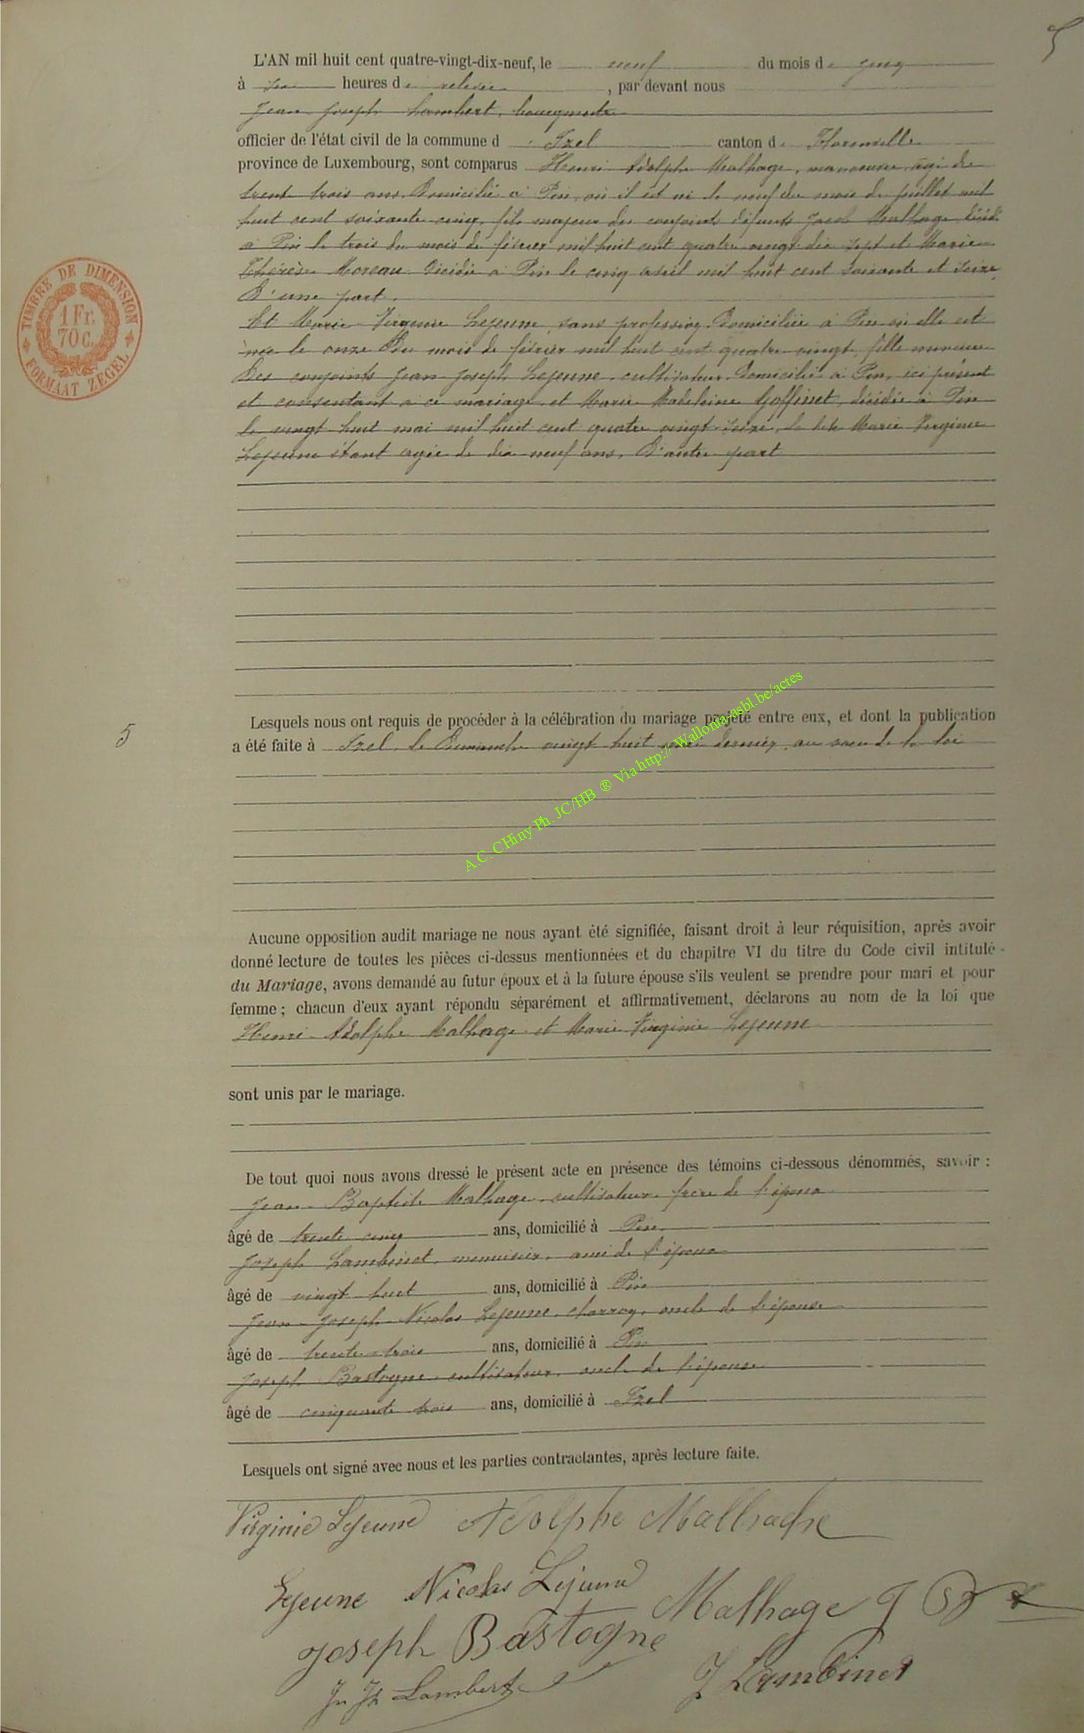 5
L'AN mil huit cent quatre-vingt-dix-neuf, le neuf du mois de juin
à heures de relevée, par devant nous
Jean Joseph Lambert, bourgmestre
officier de l'état civil de la commune d Izel canton de Florenville
province de Luxembourg, sont comparus Henri Adolphe Malhage, manoeuvre, agé de
trent trois ans, Domicilié à Pin, où il est né le neuf du mois de juillet mil
huit cent soixante cinq, fils majeur des conjoints défunts Jacob Malhage décédé
à Pin le trois du mois de février mil huit cent quatre vingt dix sept et Marie
Thérèse Moreau décédée à Pin le cinq avril mil huit cent soixante et seize,
D'une part.
Et Marie Virginie Lejeune, sans profession, Domiciliée à Pin où elle est
née le onze du mois de février mil huit cent quatre vingt, fille mineure
des conjoints Jean Joseph Lejeune, cultivateur, Domicilié à Pin, ici présent
et consentant à ce mariage, et Marie Madeleine Goffinet, décédée à Pin
le vingt huit mai mil huit cent quatre vingt seize, la dite Marie Virginie
Lejeune étant agée de dix neuf ans, D'autre part
TIMBRE DE DIMENSION
1 Fr.
70 c.
FORMAAT ZEGEL
5
Lesquels nous ont requis de procéder à la célébration du mariage projeté entre eux, et dont la publication
a été faite à Izel, le Dimanche vingt huit mai dernier, au voeu de la loi
A.C. CHiny Ph. JC/HB ® Via http://Wallonia-asbl.be/actes
Aucune opposition audit mariage ne nous ayant été signifiée, faisant droit à leur réquisition, après avoir
donné lecture de toutes les pièces ci-dessus mentionnées et du chapitre VI du titre du Code civil intitulé
du Mariage, avons demandé au futur époux et à la future épouse s'ils veulent se prendre pour mari et pour
femme ; chacun d'eux ayant répondu séparément et affirmativement, déclarons au nom de la loi que
Henri Adolphe Malhage et Marie Virginie Lejeune
sont unis par le mariage.
De tout quoi nous avons dressé le présent acte en présence des témoins ci-dessous dénommés, savoir :
Jean Baptiste Malhage, cultivateur, frère de l'époux
âgé de trente cinq ans, domicilié à Pin
Joseph Lambinet, menuisier, ami de l'époux
âgé de vingt huit ans, domicilié à Pin
Jean Joseph Nicolas Lejeune, charron, oncle de l'épouse
âgé de trente-trois ans, domicilié à Pin
Joseph Bastogne, cultivateur, oncle de l'épouse
âgé de cinquante trois ans, domicilié à Izel
Lesquels ont signé avec nous et les parties contractantes, après lecture faite.
Virginie Lejeune Adolphe Malhache
Lejeune Nicolas Lejeune Malhage J B
Joseph Bastogne
Jn Jh Lambert J Lambinet